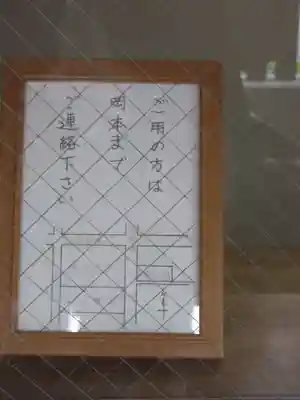 ご用の方は
岡本まで
ご連絡下さい